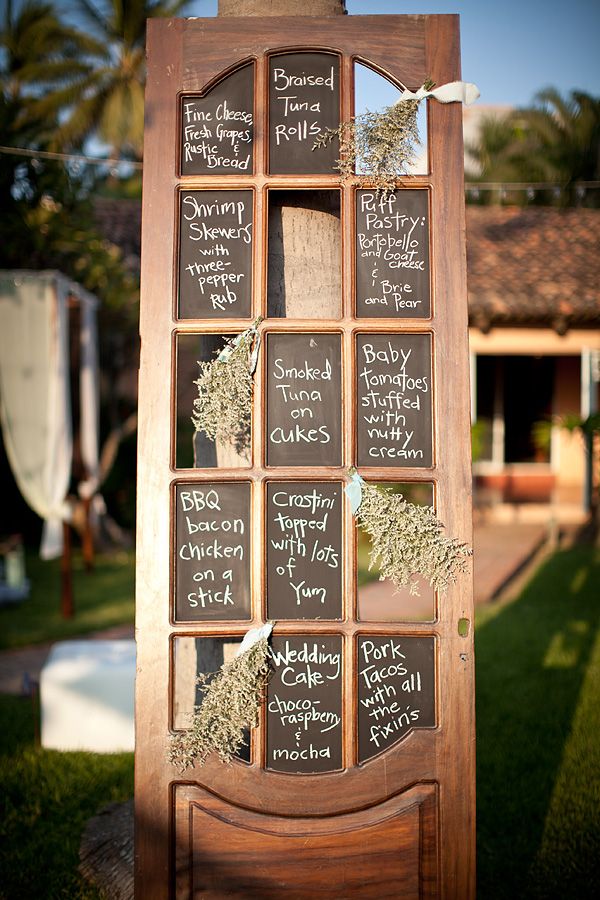 Fine Cheese,
Fresh Grapes,
Rustic &
Bread
Braised
Tuna
Rolls
Shrimp
Skewers
with
three-
pepper
rub
Puff
Pastry:
Portobello
and Goat
cheese
&
Brie
and Pear
Smoked
Tuna
on
cakes
Baby
tomatoes
stuffed
with
nutty
cream
BBQ
bacon
chicken
on a
stick
Crostini
topped
with lots
of
Yum
Wedding
Cake
choco-
raspberry
&
mocha
Pork
Tacos
with all
the
fixin's